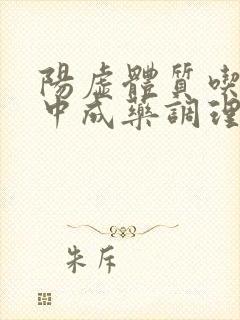 陽虛體質喫
中成藥調理
朱斥